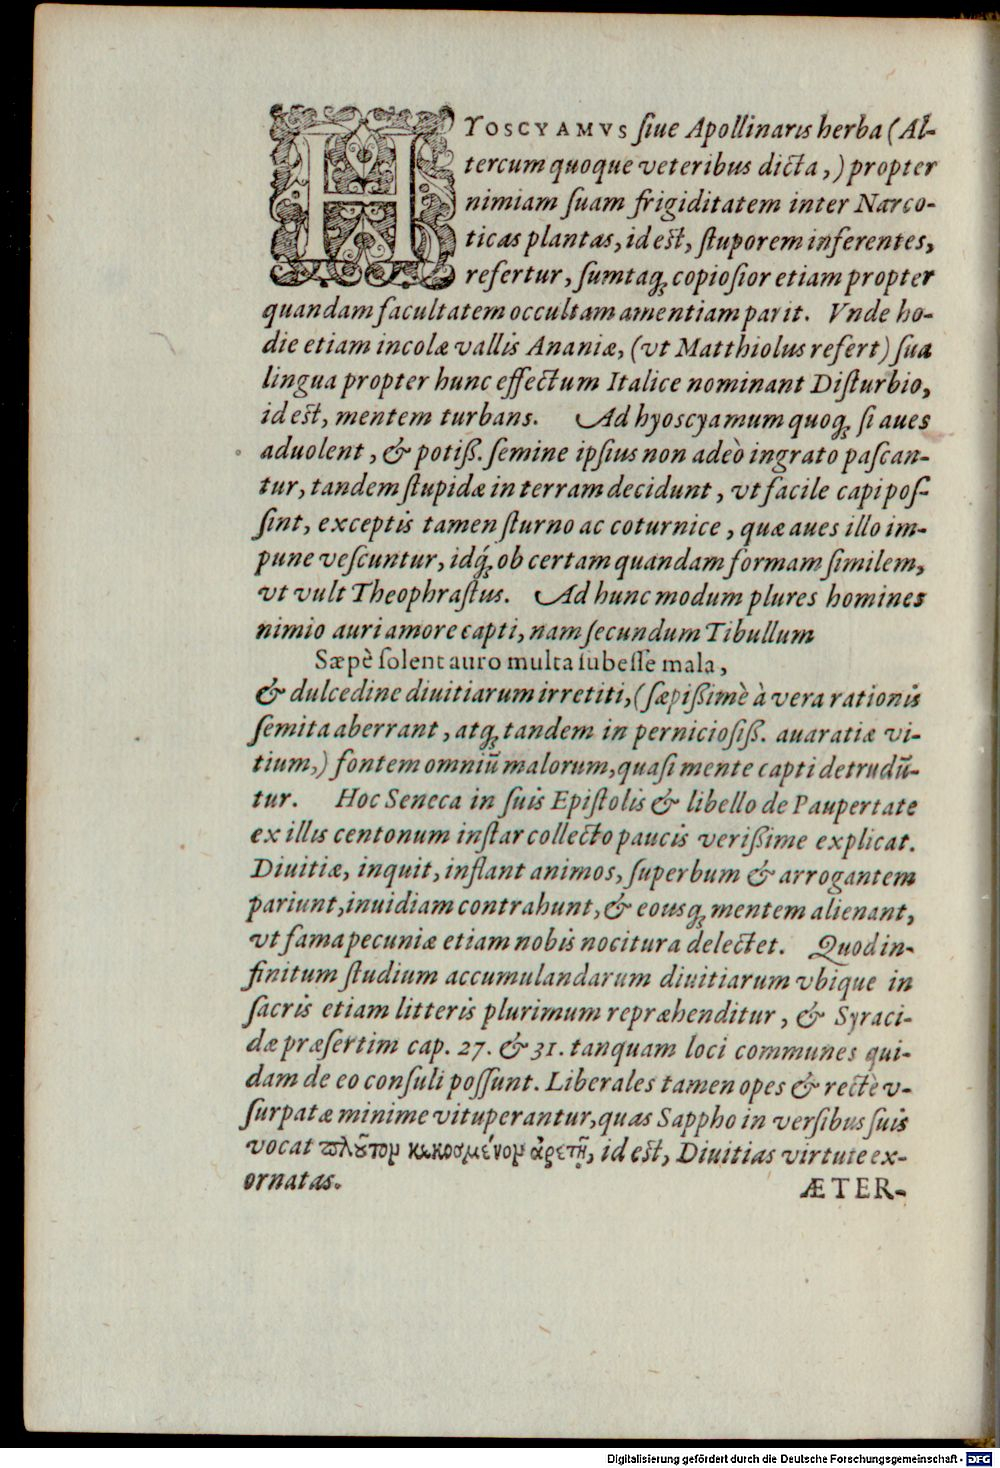 HYOSCYAMVS ſiue Apollinaris herba (Al-
tercum quoque veteribus dicta,) propter
nimiam ſuam frigiditatem inter Narco-
ticas plantas, id eſt, ſtuporem inferentes,
refertur, ſumtaqꝫ copioſior etiam propter
quandam facultatem occultam amentiam parit. Vnde ho-
die etiam incolæ vallis Ananiæ, (vt Matthiolus refert) ſua
lingua propter hunc effectum Italice nominant Diſturbio,
id eſt, mentem turbans. Ad hyoscyamum quoqꝫ ſi aues
aduolent, & potiß. ſemine ipſius non adeò ingrato paſcan-
tur, tandem ſtupidæ in terram decidunt, vt facile capi poſ-
ſint, exceptis tamen ſturno ac coturnice, quæ aues illo im-
pune veſcuntur, idq́ꝫ ob certam quandam formam ſimilem,
vt vult Theophraſtus. Ad hunc modum plures homines
nimio auri amore capti, nam ſecundum Tibullum
Sæpè ſolent auro multa ſubeſſe mala,
& dulcedine diuitiarum irretiti, (ſæpißimè à vera rationis
ſemita aberrant, atqꝫ tandem in pernicioſiß. auaratiæ vi-
tium,) fontem omniũ malorum, quaſi mente capti detrudũ-
tur. Hoc Seneca in ſuis Epiſtolis & libello de Paupertate
ex illis centonum inſtar collecto paucis verißime explicat.
Diuitiæ, inquit, inflant animos, ſuperbum & arrogantem
pariunt, inuidiam contrahunt, & eousqꝫ mentem alienant,
vt fama pecuniæ etiam nobis nocitura delectet. Quod in-
finitum ſtudium accumulandarum diuitiarum vbique in
ſacris etiam litteris plurimum repræhenditur, & Syraci-
dæ præſertim cap. 27. & 31. tanquam loci communes qui-
dam de eo conſuli poſſunt. Liberales tamen opes & rectè v-
ſurpatæ minime vituperantur, quas Sappho in verſibus ſuis
vocat πλοῦτομ κωκοσμένομ ἀρετῇ, id eſt, Diuitias virtute ex-
ornatas.
ÆTER-
Digitalisierung gefördert durch die Deutsche Forschungsgemeinschaft - DFG